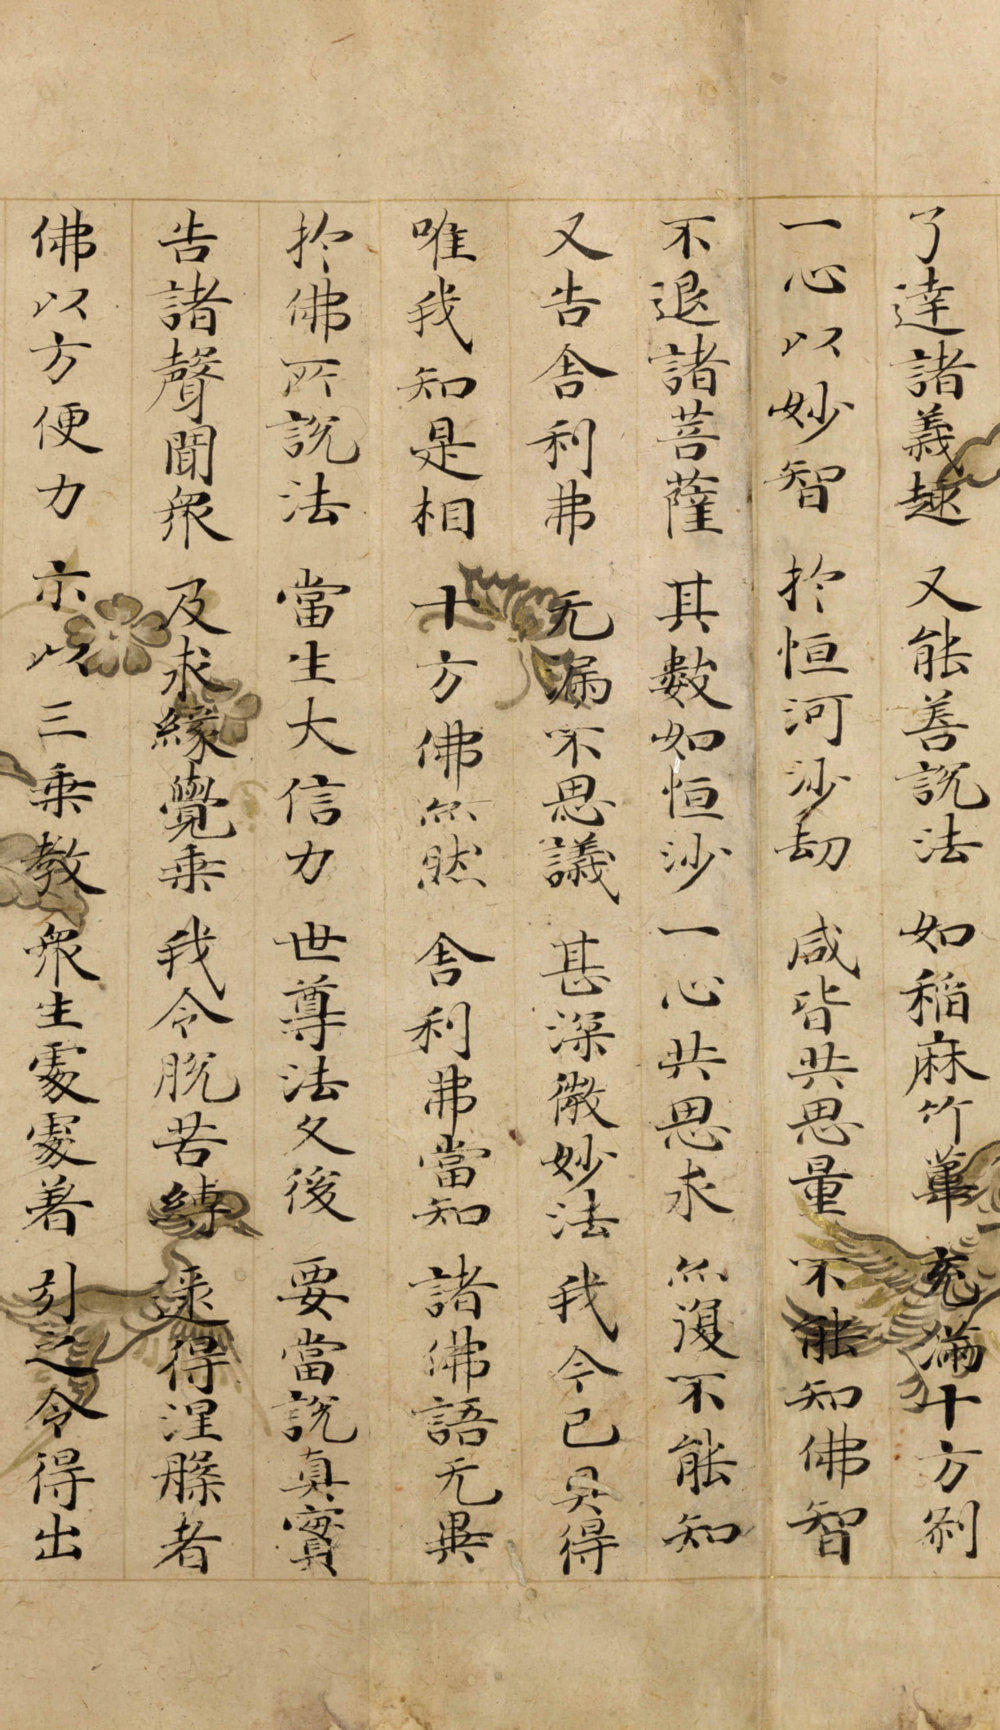 了達諸義趣 又能善說法 如稻麻竹葦 充滿十方剎
一心以妙智 於恒河沙劫 咸皆共思量 不能知佛智
不退諸菩薩 其數如恒沙 一心共思求 亦復不能知
又告舍利弗 无漏不思議 甚深微妙法 我今已具得
唯我知是相 十方佛亦然 舍利弗當知 諸佛語无異
於佛所說法 當生大信力 世尊法久後 要當說真實
告諸聲聞衆 及求緣覺乘 我令脫苦縛 逮得涅槃者
佛以方便力 示以三乘教 衆生處處著 引之令得出